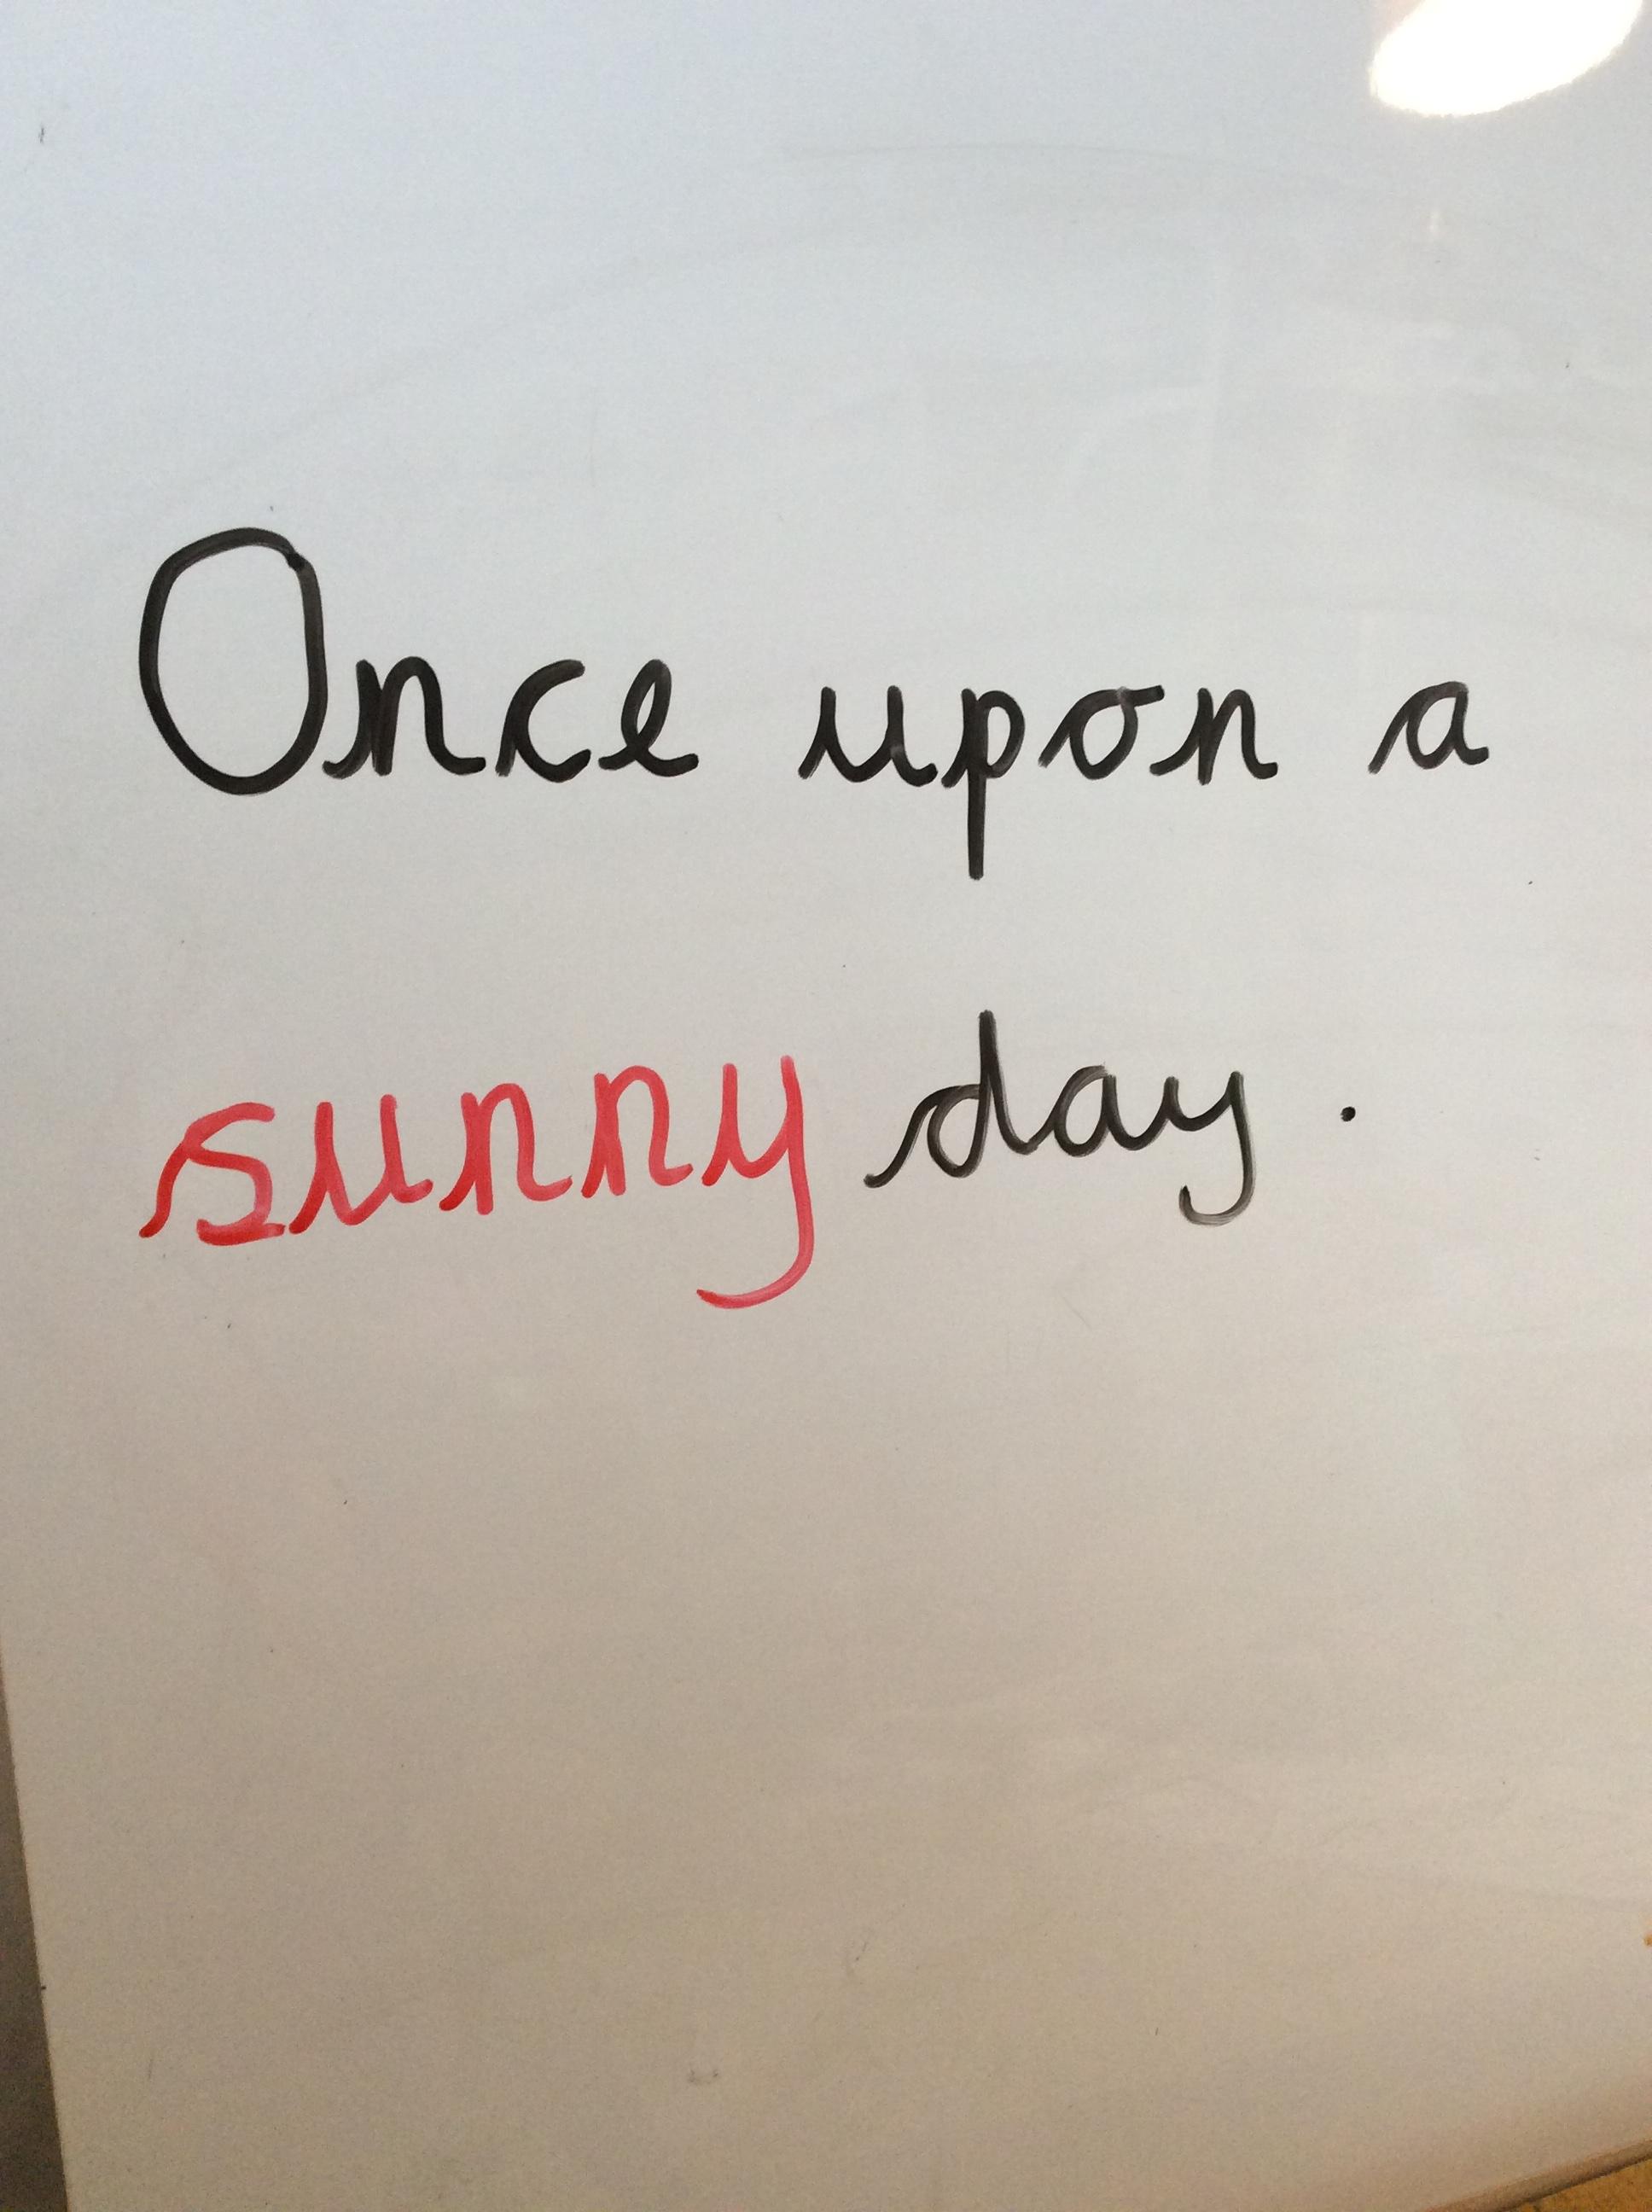 Once upon a
sunny day.